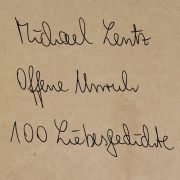 Michael Lentz
Offene Unruh
100 Liebesgedichte